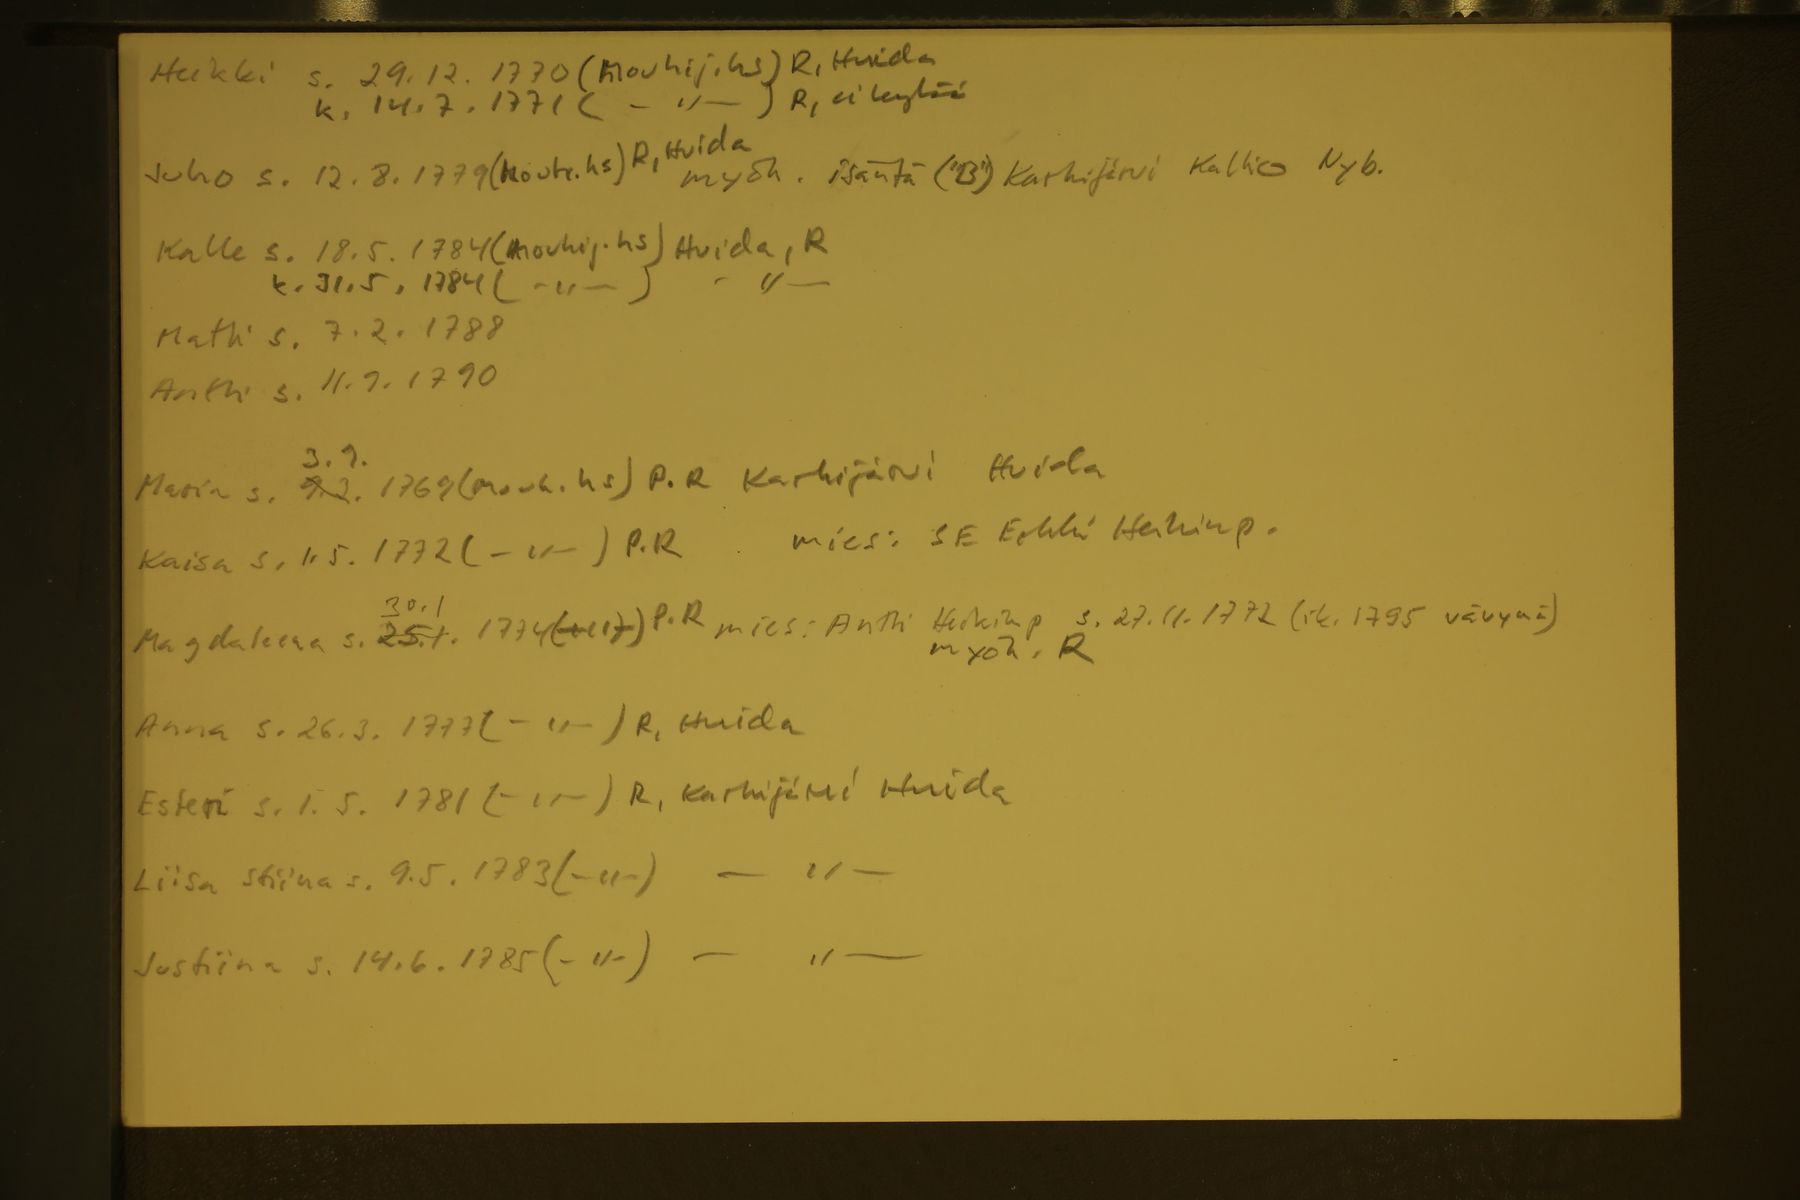 Heikki s. 29.12.1770 (Mouhij.hs) R, Hvida
k. 14.7.1771 ( - " - ) R, ei kylää
Juho s. 12.8.1779 (Mouh.hs) R, Hvida myöh. isäntä ("B") Karhijärvi Kallio Nyb.
Kalle s. 18.5.1784 (Mouhij.hs) Hvida, R
k. 31.5.1784 ( - " - ) - " -
Matti s. 7.2.1788
Antti s. 11.9.1790
Maria s. 3.9. 1769 (Mouh.hs) P.R Karhijärvi Hvida
Kaisa s. 1.5.1772 ( - " - ) P.R mies: SE Erkki Heikinp.
Magdaleena s. 25.1. 30.1 1774 ( - " - ) P.R mies: Antti Heikinp s. 27.11.1772 (ik. 1795 vävynä)
myöh. R
Anna s. 26.3.1777 ( - " - ) R, Hvida
Esteri s. 1.5.1781 ( - " - ) R, Karhijärvi Hvida
Liisa Stiina s. 9.5.1783 ( - " - ) - " -
Justiina s. 14.6.1785 ( - " - ) - " -